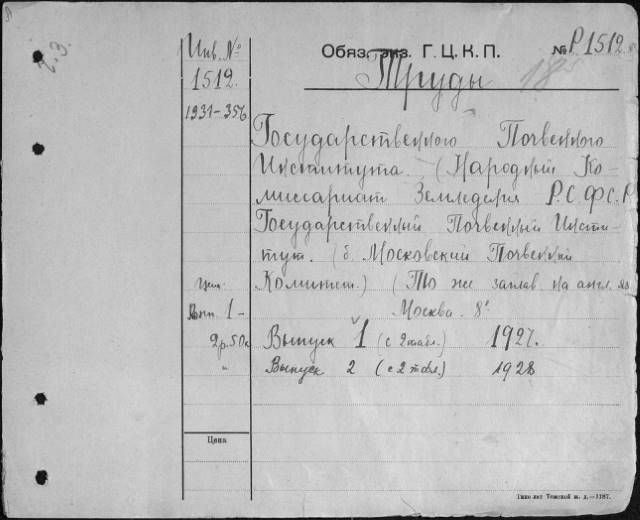 Инв. №
1512.
1931-356
Обяз. экз. Г. Ц. К. П.
№ Р1512
Труды
Государственного Почвенного
Института. (Народный Ко-
миссариат Земледелия Р.С.Ф.С.Р.
Государственный Почвенный Инсти-
тут. (б. Московский Почвенный
Комитет.) (То же заглав. на англ. яз.
Москва. 8°.
Цена.
Вып. 1 -
2 р. 50 к.
"
Выпуск 1 (с 2 табл.) 1927.
Выпуск 2 (с 2 табл.) 1928
Цена
Типо-лит Томской ж. д.—1187.